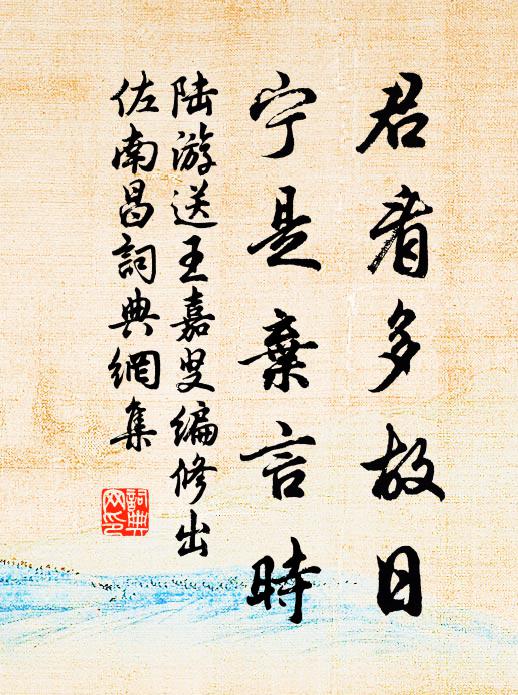 君看多故日
宁是棄言時
陆游送王嘉叟编修出
佐南昌詞典網集
詞典
网印